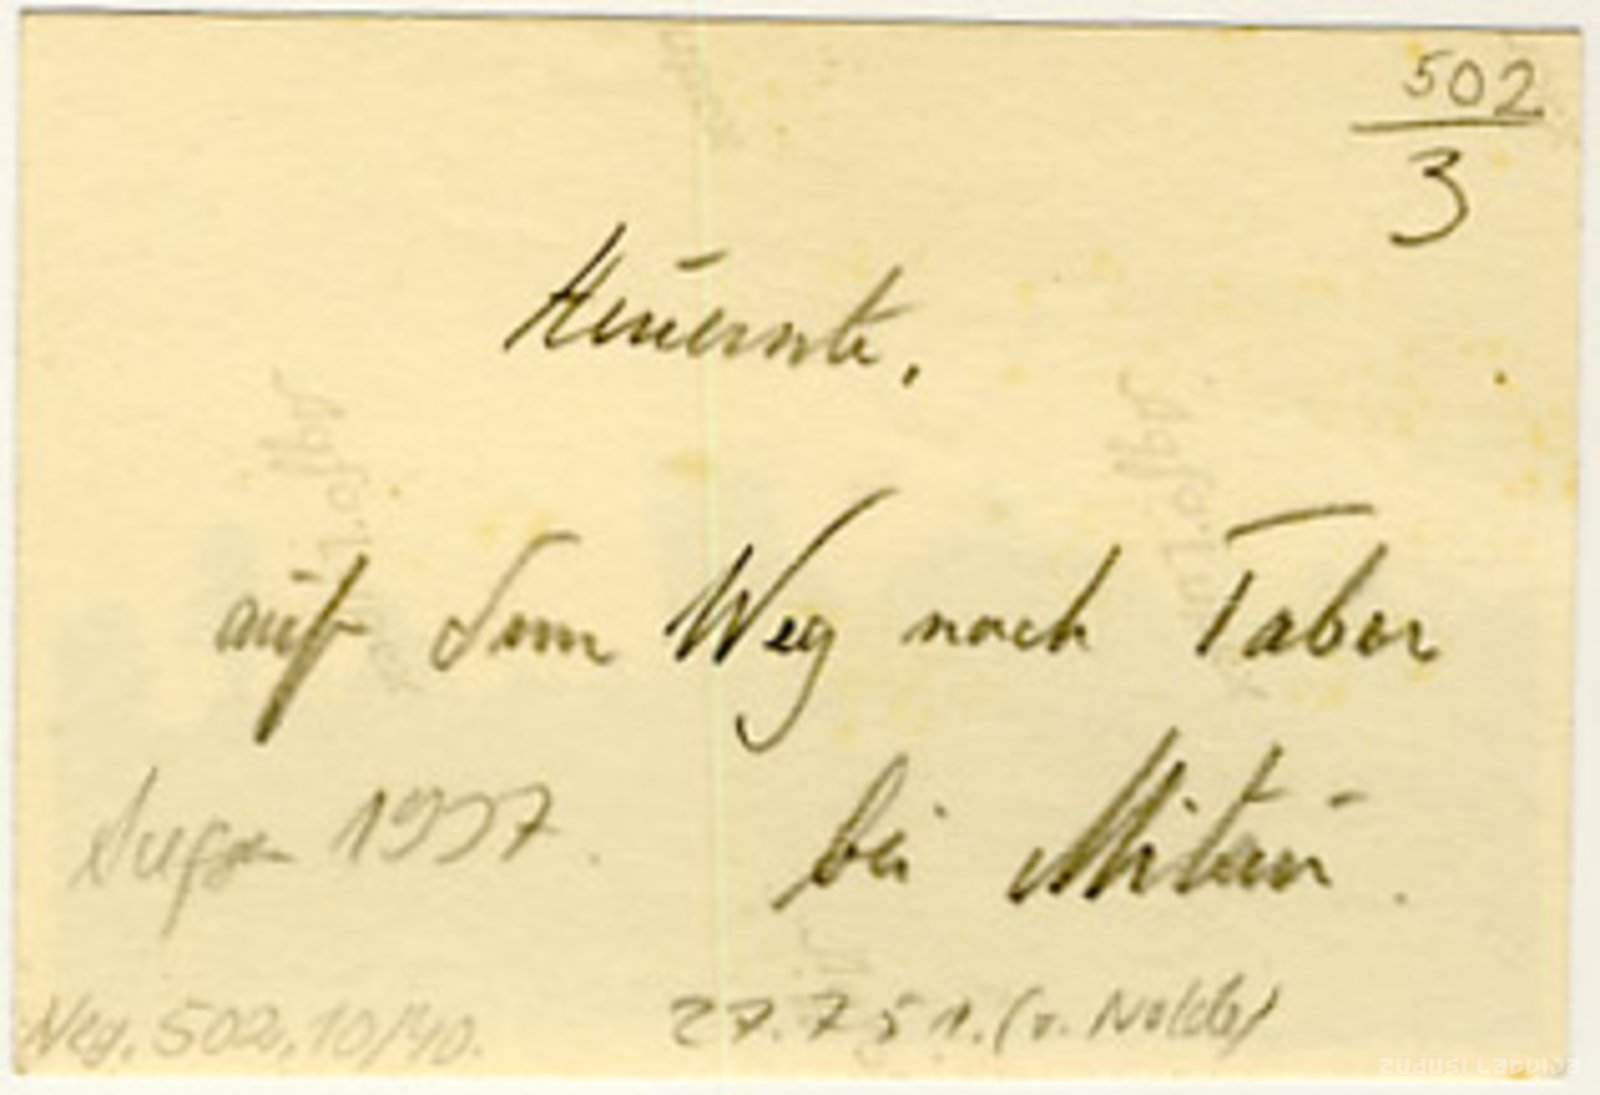 502
3
Heuernte,
auf dem Weg nach Tabor
bei Mitau.
Aufn 1937.
Neg. 502, 10/40.
27.7.51. (v. Nolde)
Zudusi Latvija